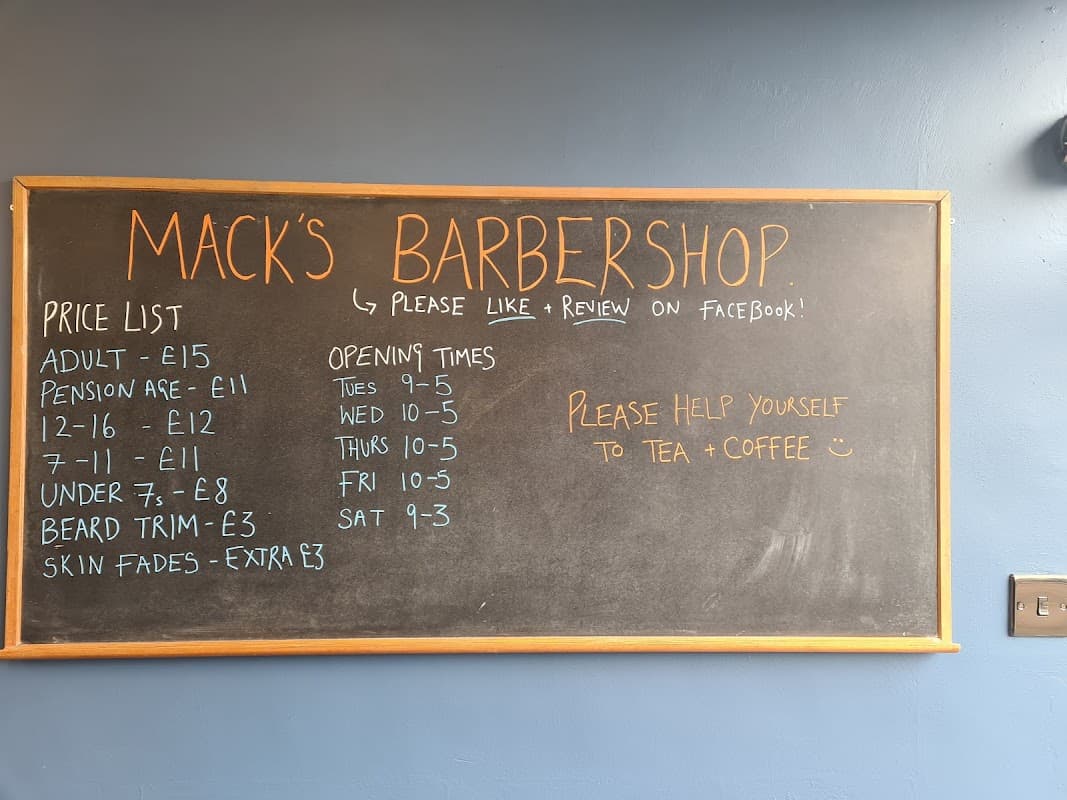 MACK'S BARBERSHOP.
↳ PLEASE LIKE + REVIEW ON FACEBOOK!
PRICE LIST
ADULT - £15
PENSION AGE - £11
12-16 - £12
7-11 - £11
UNDER 7s - £8
BEARD TRIM - £3
SKIN FADES - EXTRA £3
OPENING TIMES
TUES 9-5
WED 10-5
THURS 10-5
FRI 10-5
SAT 9-3
PLEASE HELP YOURSELF
TO TEA + COFFEE :)